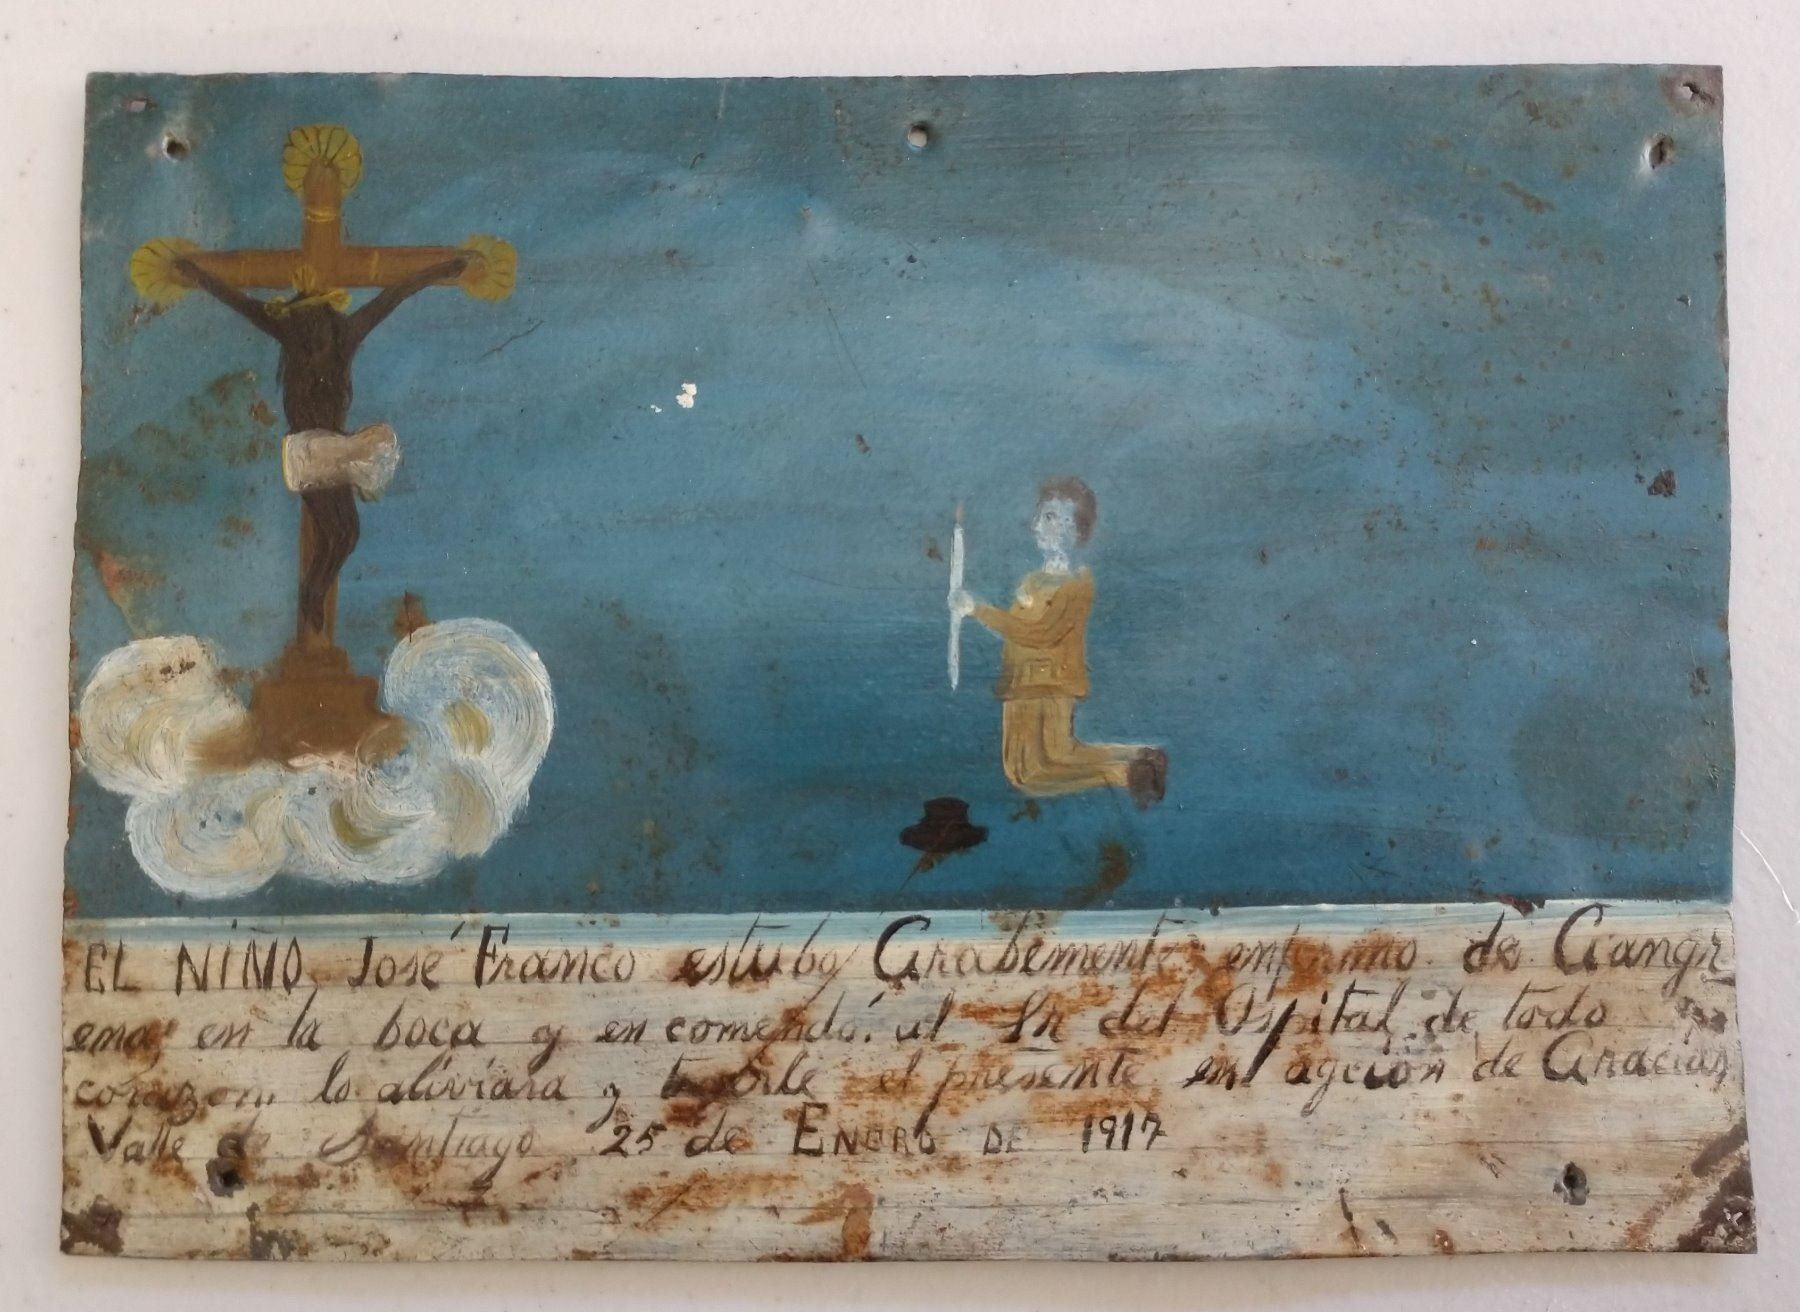 EL NIÑO José Franco estubo Grabemente enfermo de Gangr
ena, en la boca y encomendó al Sr del Ospital de todo
corazon, lo aliviara y el presente en agcion de Gracias
Valle de Santiago 25 de ENERO DE 1917